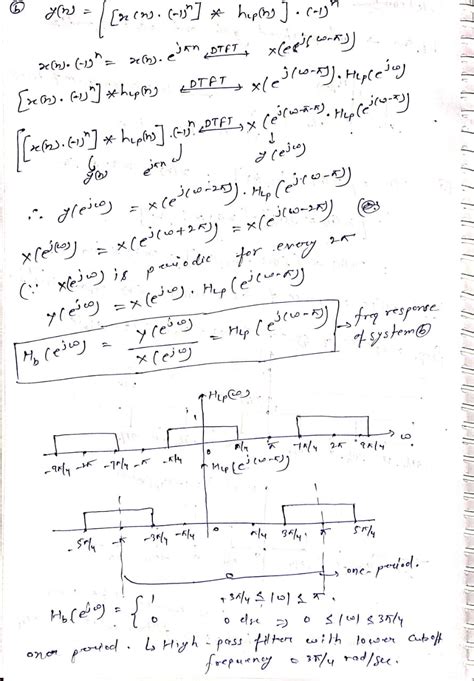 ⑥ y(n) = [[x(n).(-1)^n] * h_Lp(n)].(-1)^n
x(n).(-1)^n = x(n).e^{jπn} <-DTFT-> x(e^{j(ω-π)})
[x(n).(-1)^n] * h_Lp(n) <-DTFT-> x(e^{j(ω-π)}).H_Lp(e^{jω})
[[x(n).(-1)^n] * h_Lp(n)].(-1)^n <-DTFT-> x(e^{j(ω-π-π)}).H_Lp(e^{j(ω-π)})
y(n) e^{jπn} y(e^{jω})
∴ y(e^{jω}) = x(e^{j(ω-2π)}).H_Lp(e^{j(ω-π)})
x(e^{jω}) = x(e^{j(ω+2π)}) = x(e^{j(ω-2π)})
(∵ x(e^{jω}) is periodic for every 2π
y(e^{jω}) = x(e^{jω}).H_Lp(e^{j(ω-π)})
H_b(e^{jω}) = y(e^{jω}) / x(e^{jω}) = H_Lp(e^{j(ω-π)}) → freq response
of system ⑥
H_Lp(ω)
1
-9π/4 -2π -7π/4 -π -π/4 0 π/4 π 7π/4 2π 9π/4 ω
H_Lp(e^{j(ω-π)})
-5π/4 -π -3π/4 -π/4 0 π/4 3π/4 π 5π/4
→ one-period.
H_b(e^{jω}) = { 1 +3π/4 ≤ |ω| ≤ π.
0 0 else ⇒ 0 ≤ |ω| ≤ 3π/4
one period. ↳ High-pass filter with lower cutoff
frequency = 3π/4 rad/sec.